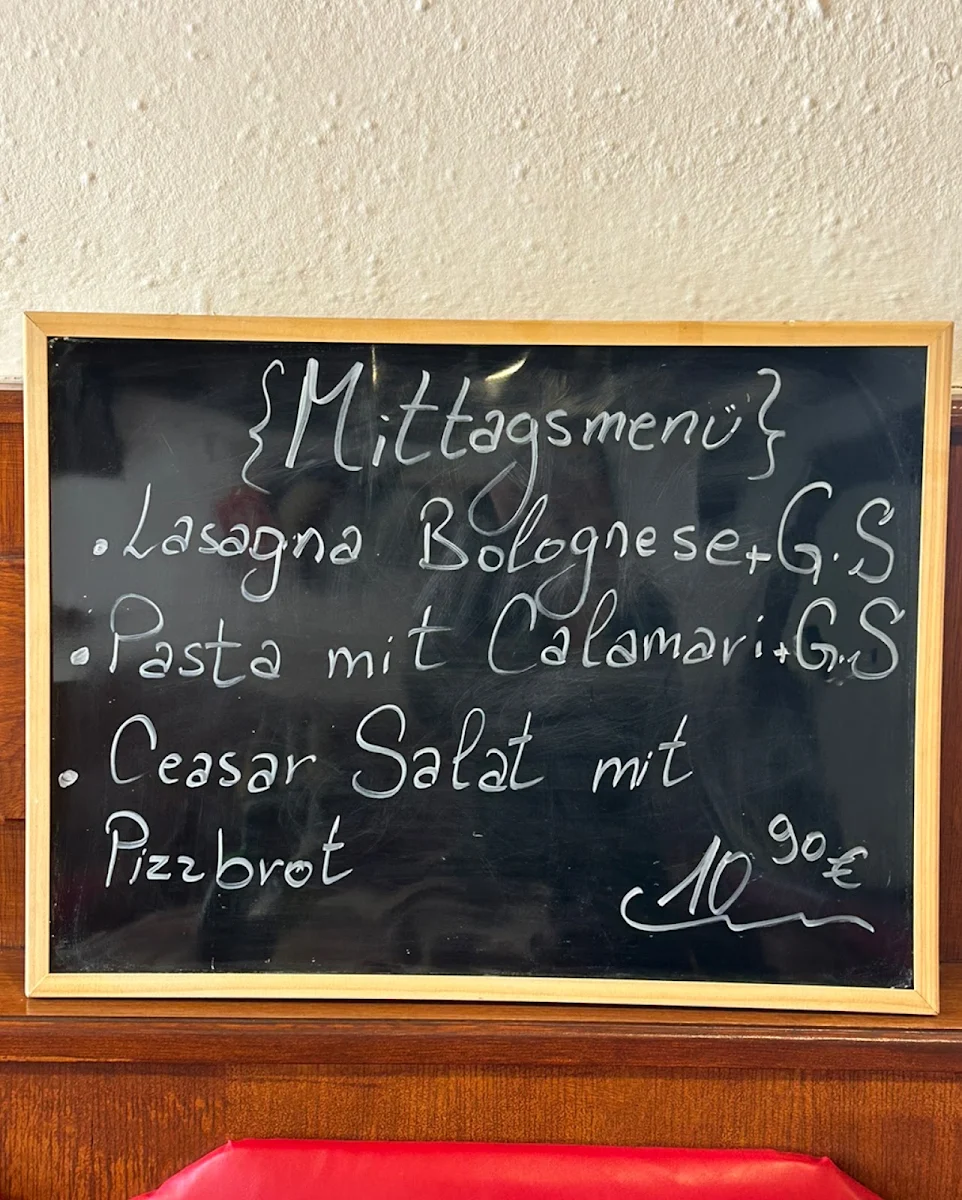 {Mittagsmenü}
• Lasagna Bolognese + G.S
• Pasta mit Calamari + G.S
• Ceasar Salat mit
Pizzbrot
10 90 €